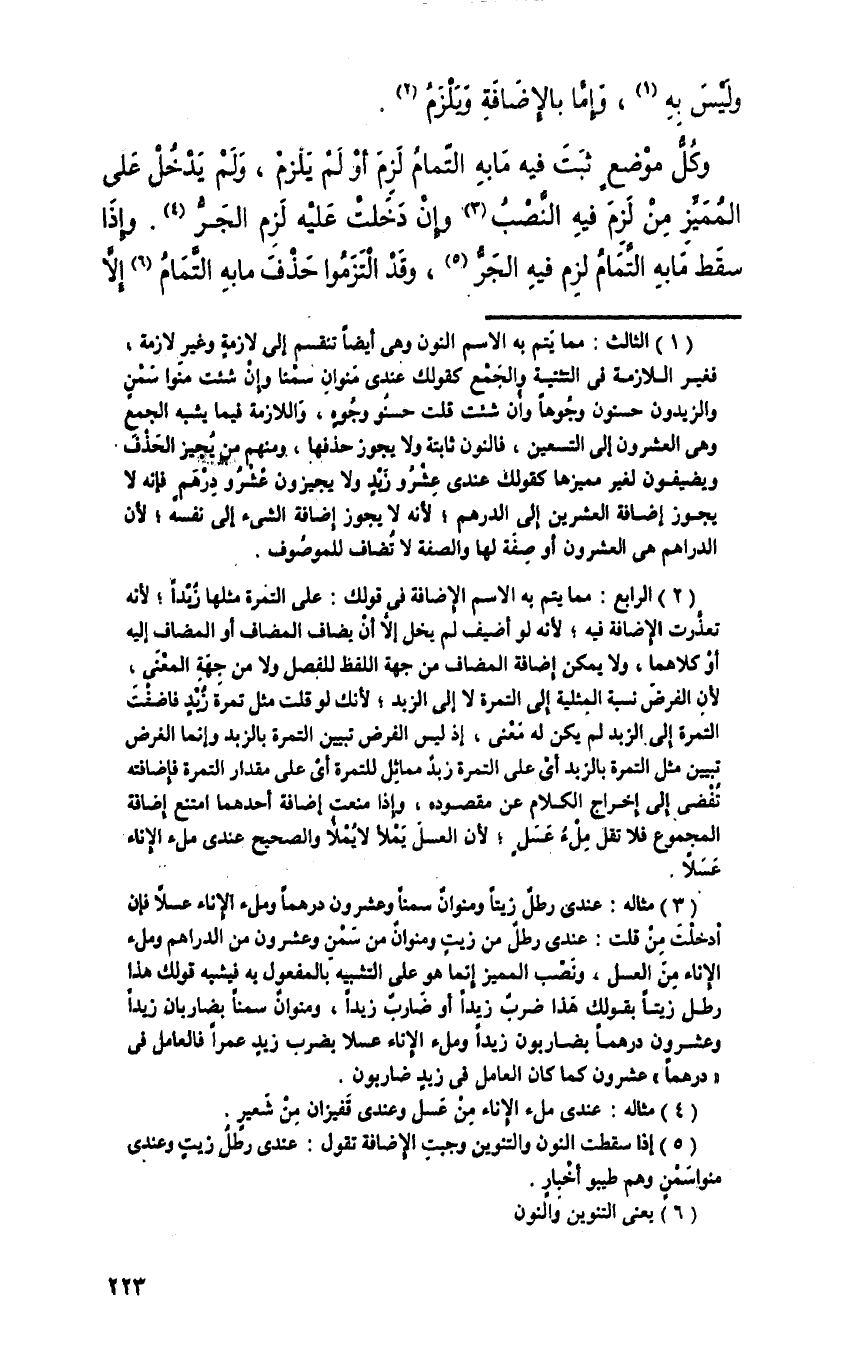 ولَيْسَ بِهِ (١) ، وَإِمَّا بالإِضَافَةِ وَيَلْزَمُ (٢) .
وكُلُّ موْضعٍ ثبَتَ فيه مَابهِ التَّمامُ لَزِمَ أوْ لَمْ يَلْزمْ ، وَلَمْ يَدْخُلْ عَلى
المُمَيَّزِ مِنْ لَزِمَ فيهِ النَّصْبُ (٣) وإِنْ دَخَلتْ عَليْه لَزِم الجَرُّ (٤) . وإِذَا
سقَط مَابهِ التَّمَامُ لزم فيهِ الجَرُّ (٥) ، وقَدْ الْتَزَمُوا حَذْفَ مابهِ التَّمَامُ (٦) إلَّا
( ١ ) الثالث : مما يَتم به الاسم النون وهى أيضاً تنقسم إلى لازمةٍ وغيرِ لازمة ،
فغير اللازمة فى التثنية والجَمْع كقولك عندى مَنوانِ سَمْنا وإنْ شئت منَوا سَمْنٍ
والزيدون حسنون وجُوهاً وأن شئت قلت حسنُو وجُوهٍ ، وَاللازمة فيما يشبه الجمع
وهى العشرون إلى التسعين ، فالنون ثابتة ولا يجوز حذفها ، ومنهم من يُجيز الحَذْفَ
ويضيفون لغير مميزها كقولكَ عندى عِشْرُو زَيْدٍ ولا يجيزون عُشْرُو دِرْهَمٍ فإنه لا
يجوز إضافة العشرين إلى الدرهم ؛ لأنه لا يجوز إضافة الشىء إلى نفسه ؛ لأن
الدراهم هى العشرون أو صِفَة لها والصفة لا تُضاف للموصُوف .
( ٢ ) الرابع : مما يتم به الاسم الإضافة فى قولك : على التمْرة مثلها زُبْداً ؛ لأنه
تعذَّرت الإضافة فيه ؛ لأنه لو أضيف لم يخل إلَّا أنْ يضاف المضاف أو المضاف إليه
أوْ كلاهما ، ولا يمكن إضافة المضاف من جهة اللفظ للفصل ولا من جِهَةِ المعْنَى ،
لأن الفرضَ نسبة المِثلية إلى التمرة لا إلى الزبد ؛ لأنك لو قلت مثل تمرة زُبْدٍ فاضفْتَ
التمرة إلى الزبد لم يكن له مَعْنى ، إذ ليس الفرض تبيين التمرة بالزبد وإنما الغرض
تبيين مثل التمرة بالزبد أىْ على التمرة زبدٌ مماثِل للتمرة أىْ على مقدار التمرة فإضافته
تُفْضى إلى إخراج الكلام عن مقصوده ، وإذا منعت إضافة أحدهما امتنع إضافة
المجموع فلا تقل مِلْءُ عَسَلٍ ؛ لأن العسلَ يَمْلأ لايُمْلأ والصحيح عندى ملء الإناء
عَسَلاً .
( ٣ ) مثاله : عندى رطلٌ زيتاً ومنوانٌ سمناً وعشرون درهماً وملء الإناء عسلاً فإن
أدخلْتَ مِنْ قلت : عندى رطلٌ من زيتٍ ومنوانٌ من سَمْنٍ وعشرون من الدراهم وملء
الإناء مِنَ العسل ، ونَصْب المميز إنما هو على التشبيه بالمفعول به فيشبه قولك هذا
رطل زيتاً بقولك هَذا ضربٌ زيداً أو ضَاربٌ زيداً ، ومنوانٌ سمناً بضاربان زيداً
وعشرون درهماً بضاربون زيداً وملء الإناء عسلا بضرب زيدٍ عمراً فالعامل فى
« درهماً » عشرون كما كان العامل فى زيدٍ ضاربون .
( ٤ ) مثاله : عندى ملء الإناء مِنْ عَسل وعندى قَفيزان مِنْ شَعيرٍ .
( ٥ ) إذا سقطت النون والتنوين وجبتِ الإضافة تقول : عندى رطلُ زيتٍ وعندى
منواسَمْنٍ وهم طيبو أخْبارٍ .
( ٦ ) يعنى التنوين والنون
٢٢٣